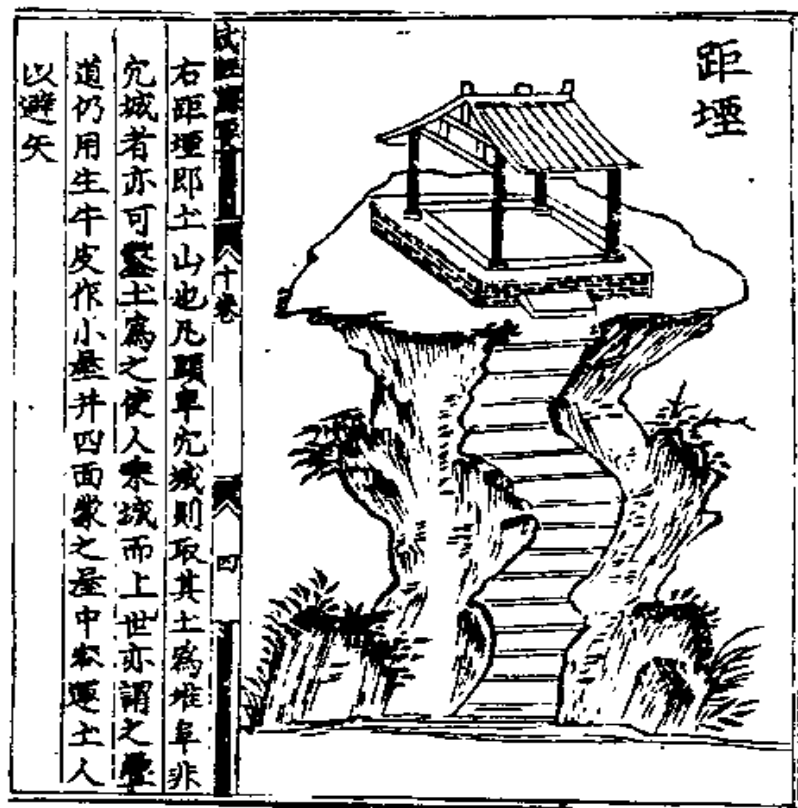 距堙
武經總要
十卷
四
右距堙即土山也凡頭車穴城則取其土爲堆阜非
穴城者亦可鑿土爲之使人乘城而上世亦謂之壘
道仍用生牛皮作小屋并四面蒙之屋中容運土人
以避矢